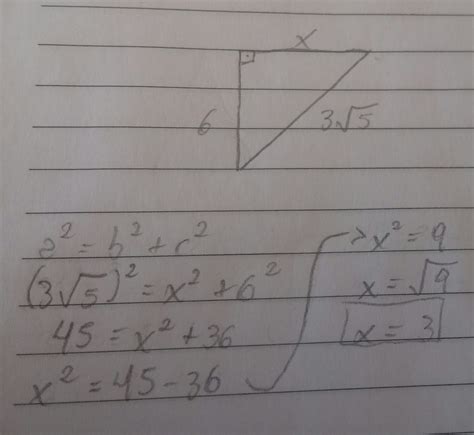 x
6
3√5
a² = b² + c²
(3√5)² = x² + 6²
45 = x² + 36
x² = 45 - 36
x² = 9
x = √9
x = 3